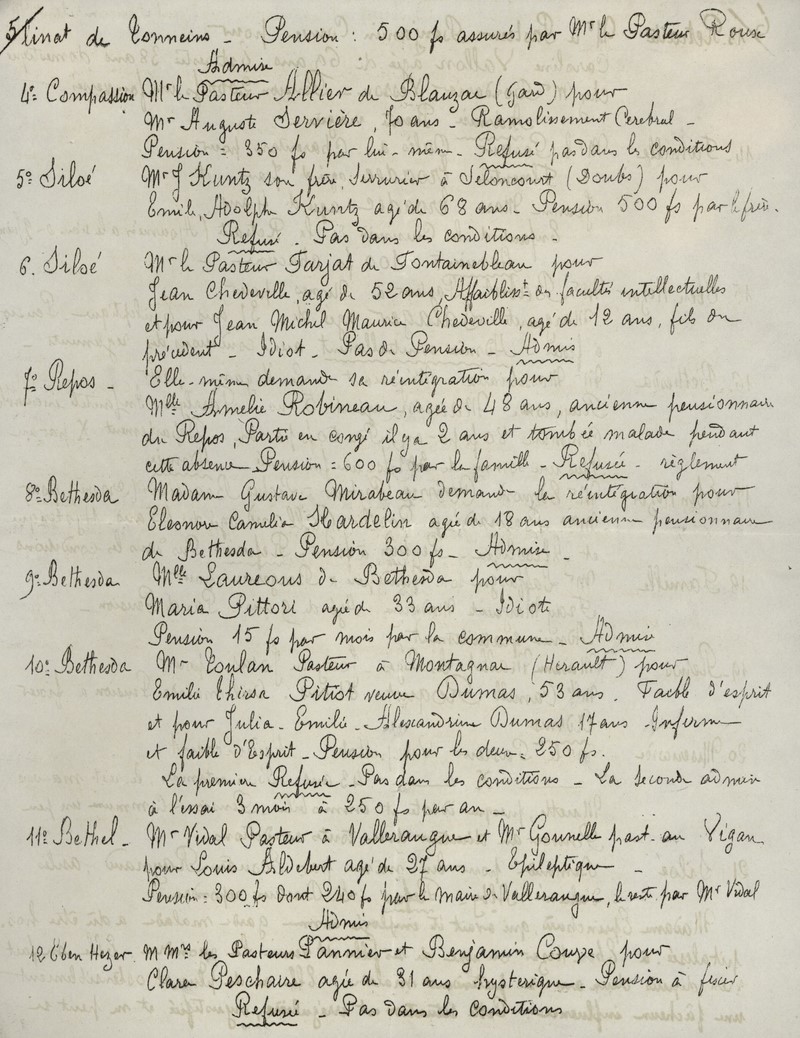 5/ tinat de Tonneins - Pension : 500 fs assurés par Mr le Pasteur Roux
Admise
4º- Compassion Mr le Pasteur Allier de Blauzac (Gard) pour
Mr Auguste Servière, 70 ans - Ramolissement Cerebral -
Pension = 350 fs par lui-même - Refusé pas dans les conditions
5º Siloé Mr J Kuntz son frère, Serrurier à Seloncourt (Doubs) pour
Emile, Adolphe Kuntz agé de 68 ans - Pension 500 fs par le frère.
Refusé. Pas dans les conditions -
6. Siloé Mr le Pasteur Tarjat de Fontainebleau pour
Jean Chedeville, agé de 52 ans, Affaiblisst des facultés intellectuelles
et pour Jean Michel Maurice Chedeville, agé de 12 ans, fils du
précédent - Idiot - Pas de Pension - Admis
7º Repos - Elle-même demande sa réintégration pour
Mlle Amelie Robineau, agée de 48 ans, ancienne pensionnaire
du Repos, Partie en congé il y a 2 ans et tombée malade pendant
cette absence Pension = 600 fs par la famille - Refusée - règlement
8º Bethesda Madame Gustave Mirabeau demande la réintégration pour
Eleonore Camelia Hardelin agée de 18 ans ancienne pensionnaire
de Bethesda - Pension 300 fs - Admise -
9º Bethesda Melle Laureous de Bethesda pour
Maria Pittori agée de 33 ans - Idiote
Pension 15 fs par mois par la commune - Admise
10º Bethesda Mr Toulan Pasteur à Montagnac (Herault) pour
Emilie Thirsa Pitiot veuve Dumas, 53 ans. Faible d'esprit
et pour Julia - Emilie - Alexandrine Dumas 17 ans - Infirme
et faible d'Esprit - Pension pour les deux = 250 fs.
La première Refusée - Pas dans les conditions - La seconde admise
à l'essai 3 mois à 250 fs par an -
11º Bethel - Mr Vidal Pasteur à Valleraugue et Mr Gounelle past. au Vigan
pour Louis Aldebert agé de 27 ans - Epileptique -
Pension : 300 fs dont 240 fs par le maire de Valleraugue, le reste par Mr Vidal
Admis
12 Eben Hezer M Mrs les Pasteurs Pannier et Benjamin Couve pour
Clara Peschaire agée de 31 ans hysterique - Pension à fixer
Refusée - Pas dans les conditions